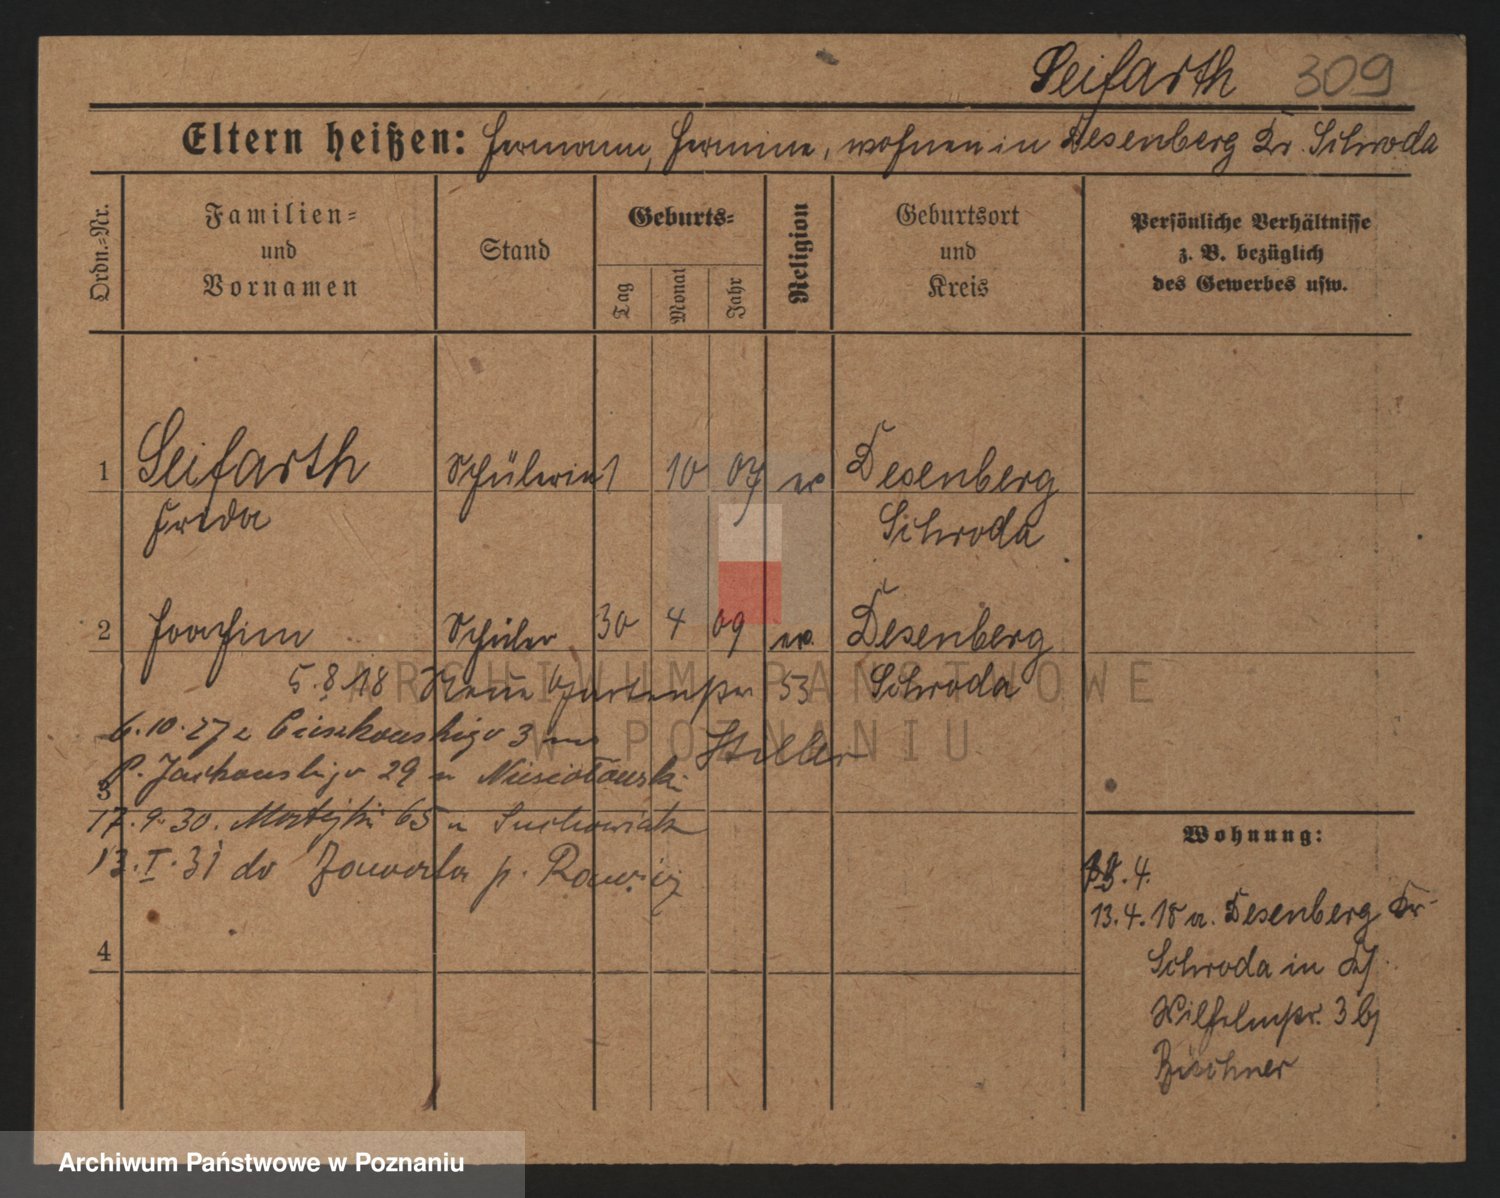 Seifarth 309
Eltern heißen: Hermann, Hermine, wohnen in Desenberg Kr. Schroda
Ordn.-Nr.
Familien-
und
Vornamen
Stand
Geburts-
Tag
Monat
Jahr
Religion
Geburtsort
und
Kreis
Persönliche Verhältnisse
z. B. bezüglich
des Gewerbes usw.
1 Seifarth Schülerin 1 10 07 ev Desenberg
Frida Schroda
2 Joachim Schüler 30 4 09 ev. Desenberg
5.8.18 Neue Gartenstr 53 Schroda
6.10.27 z Cieszkowskiego 3 Stiller
p. Jackowskiego 29 u Niesiołowski
3
17.9.30. Mostejki 65 u Suchowiak
13.I.31 do p. Rawicz
4
Wohnung:
13.4.
13.4.18 a. Desenberg Kr.
Schroda in
Wilhelmstr. 3 bj
Büschner
ARCHIWUM PAŃSTWOWE
W POZNANIU
Archiwum Państwowe w Poznaniu